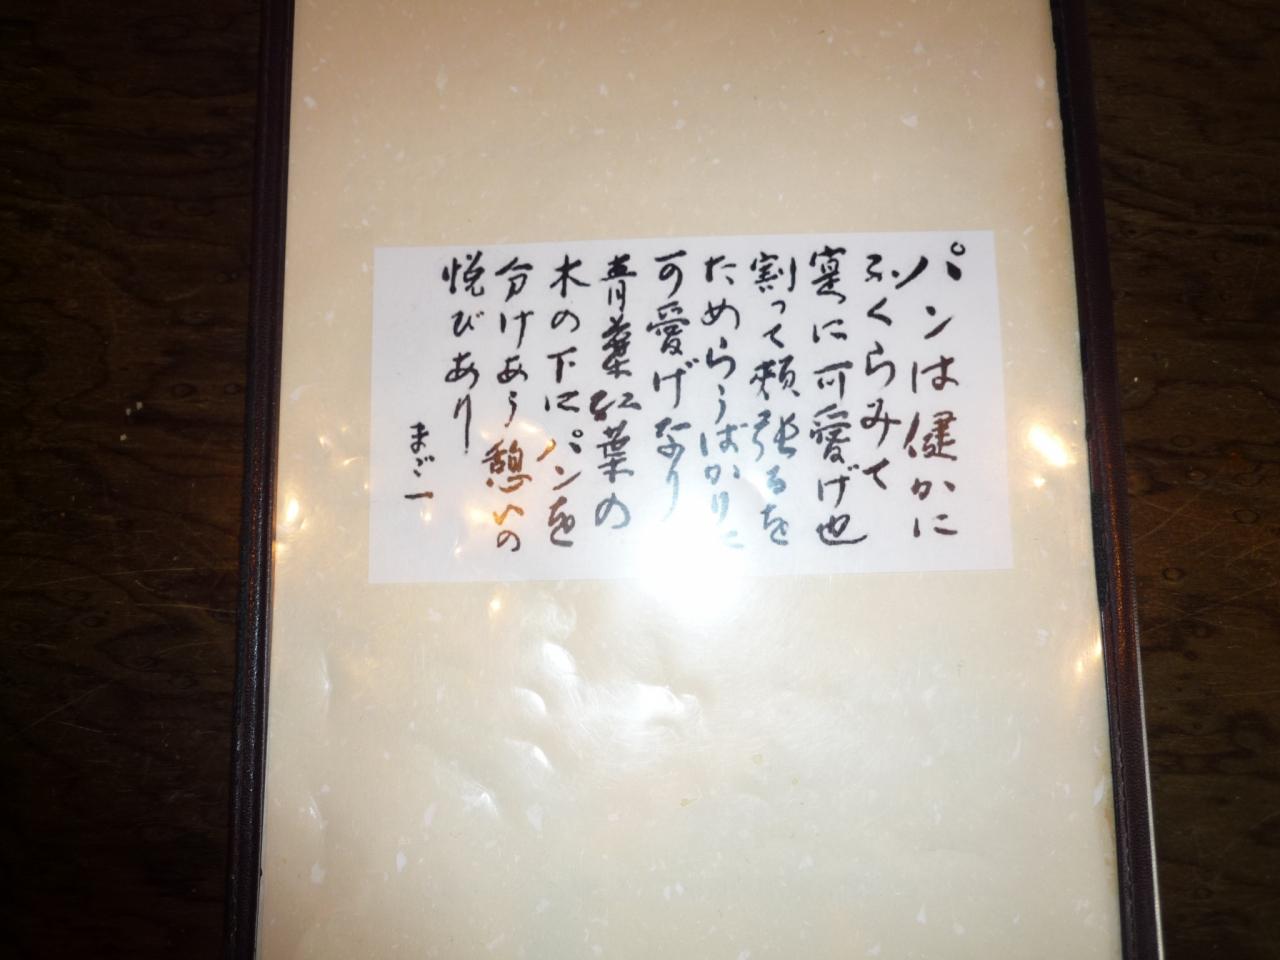 パンは健かに
ふくらみて
寔に可愛げ也
割って頬張るを
ためらうばかりに
可愛げなり
青葉紅葉の
木の下にパンを
分けあう憩いの
悦びあり
まご一